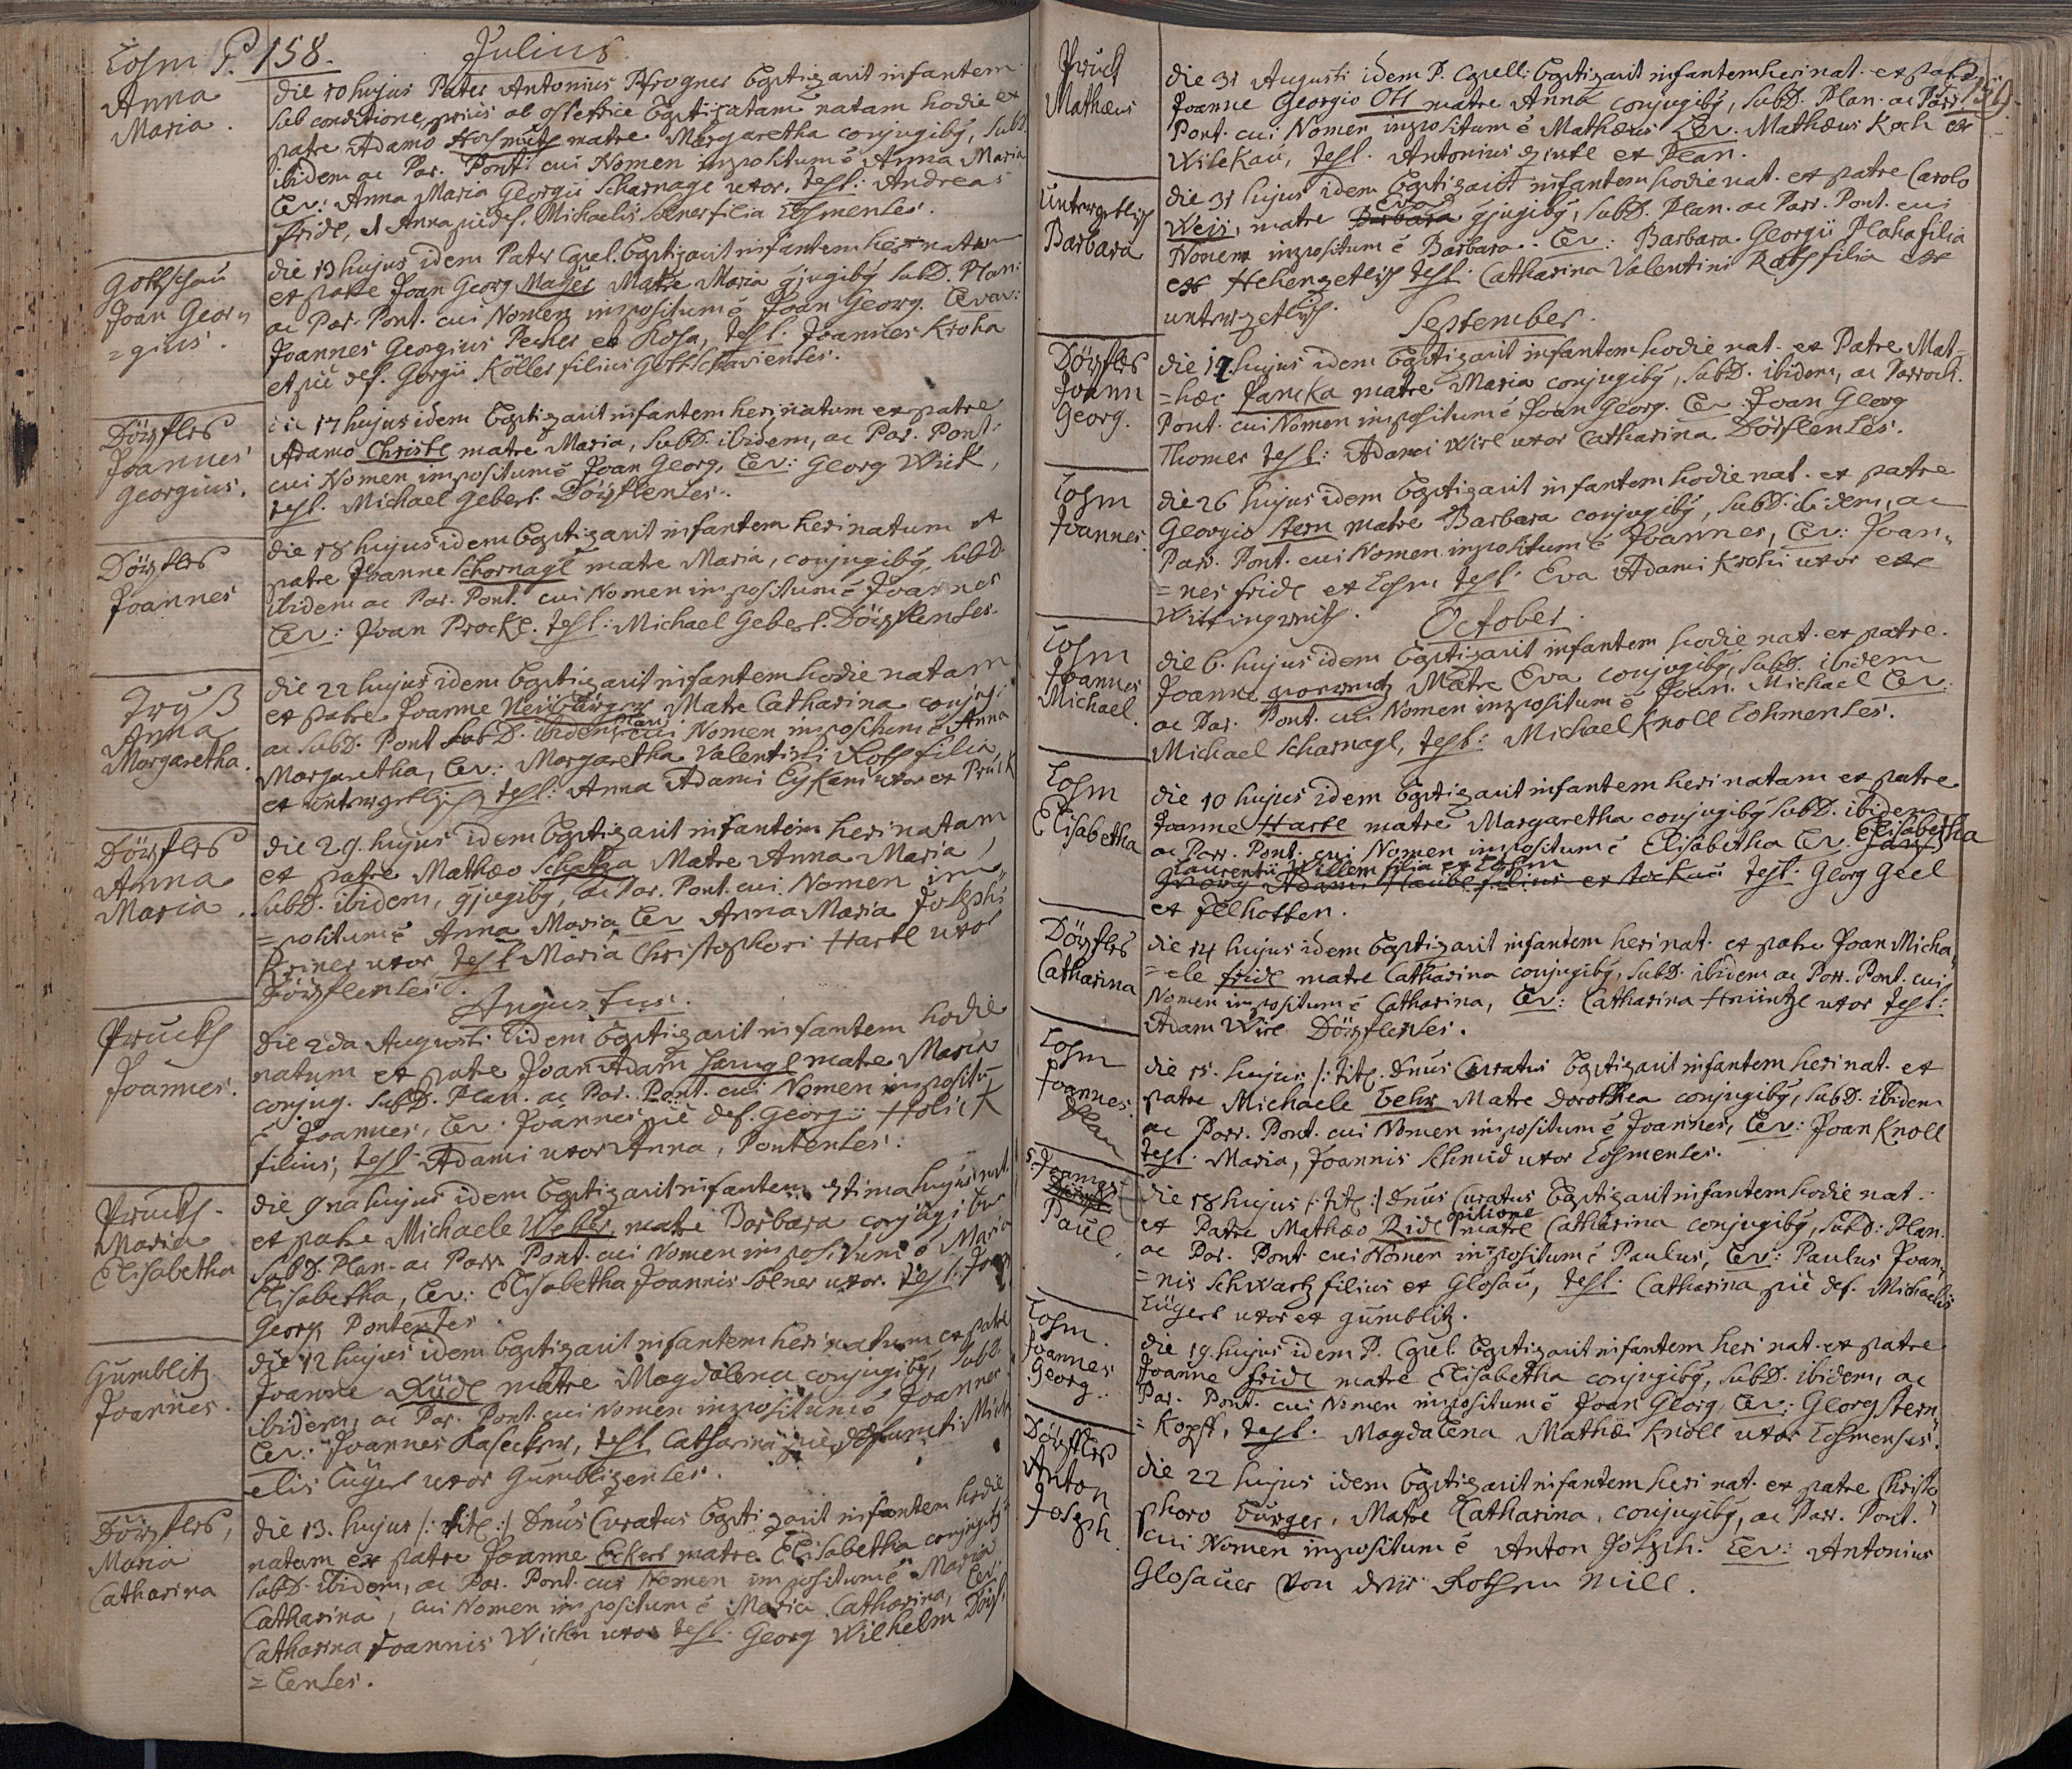 Losm P. 158. Julius
Anna
Maria.
die 10 hujus Pater Antonius Pfrogner baptizavit infantem
sub conditione, prius ab ostetrice baptizatam natam hodie ex
patre Adamo matre Margaretha conjugibq, subd.
ibidem ac Par. Pont. cui Nomen impositum ē Anna Maria
Lev: Anna Maria Georgii Scharnagl uxor, test: Andreas
Fridl, et Anna pie def. Michaelis Solner filia Losmenses.
Gottschau
Joan Geor=
=gius.
die 13 hujus idem Pater Capel. baptizavit infantem heri natum
ex patre Joan Georg Mayer Matre Maria gjugibq Subd. Plan:
ac Par. Pont. cui Nomen impositum ē Joan Georg. Levav:
Joannes Georgius Pecher ex Kosa, test. Joannes Kroha
et pie def. Gorgii Köller filius Gottschavienses.
Dörfles
Joannes
Georgius.
die 17 hujus idem baptizavit infantem heri natum ex patre
Adamo Christl matre Maria, Subd. ibidem, ac Par. Pont.
cui Nomen impositum ē Joan Georg, Lev: Georg Wirl,
test. Michael Gebert Dörflenses.
Dörfles
Joannes
die 18 hujus idem baptizavit infantem heri natum ex
patre Joanne Schornagl matre Maria, conjugibq, Subd.
ibidem ac Par. Pont. cui Nomen impositum ē Joannes
Lev: Joan Prockl. test: Michael Gebert. Dörflenses.
Anna
Margaretha.
die 22 hujus idem baptizavit infantem hodie natam
ex patre Joanne Neübürger Matre Catharina conjug:
ac Subd. Pont Subd. ibidem cui Nomen impositum ē Anna
Margaretha, Lev: Margaretha Valentini Roth filia
ex test: Anna Adami uxor ex Pruck
Dörfles
Anna
Maria.
die 29. hujus idem baptizavit infantem heri natam
ex patre Mathæo Schatza Matre Anna Maria,
Subd. ibidem, gjugibq, ac Par. Pont. cui Nomen im=
=positum ē Anna Maria Lev Anna Maria Josephi
Priner uxor test Maria Christophori Hartl uxor
Dörflenses.
Augustus.
Pruckh
Joannes.
die 2da Augusti idem baptizavit infantem hodie
natum ex patre Joan Adam matre Maria
conjug. Subd. Plan. ac Par. Pont. cui Nomen impositū
ē Joannes, Lev: Joannes pie def. Georgii Holick
filius, test: Adami uxor Anna, Pontenses.
Pruckh
Maria
Elisabetha
die 9na hujus idem baptizavit infantem 7tima hujus nat.
ex patre Michaele Weber, matre Barbara conjugibus
Subd. Plan. ac Parr. Pont. cui Nomen impositum ē Maria
Elisabetha, Lev: Elisabetha Joannis Solner uxor. test: Joan
Georg Pontenses
Gümblitz
Joannes.
die 12 hujus idem baptizavit infantem heri natum ex patre
Joanne Rüdl matre Magdalena conjugibq, Subd.
ibidem, ac Par. Pont. cui Nomen impositum ē Joannes
Lev: Joannes test Catharina pie defuncti Mich
elis Lügert uxor Gümblizenses.
Dörfles,
Maria
Catharina
die 13. hujus /: tit: :/ Dnus Curatus baptizavit infantem hodie
natam ex patre Joanne Eckert matre Elisabetha conjugibq
Subd. ibidem, ac Par. Pont. cui Nomen impositum ē Maria
Catharina, cui Nomen impositum ē Maria Catharina, Lev
Catharina Joannis Wichn uxor test. Georg Wilhelm Dörf.
=lenses.
159.
Pruck
Mathæus
die 31 Augusti idem P. Capell: baptizavit infantem heri nat. ex patre
Joanne Georgio Ott matre Anna conjugibq, Subd. Plan. ac Parr.
Pont. cui Nomen impositum ē Mathæus Lev. Mathæus Koch ex
Wilckau, test. Antonius ex Plan.
Barbara
die 31 hujus idem baptizavit infantem hodie nat. ex patre Carolo
Weis, matre Barbara Eva gjugibq, Subd. Plan. ac Parr. Pont. cui
Nomen impositum ē Barbara. Lev: Barbara Georgii Plaha filia
ex test. Catharina Valentini Roth filia ex
September.
Dörfles
Joann
Georg.
die 19 hujus idem baptizavit infantem hodie nat. ex Patre Mat=
=hæi Jancka matre Maria conjugibq, Subd. ibidem, ac Parroch.
Pont. cui Nomen impositum ē Joan Georg. Lev: Joan Georg
Thomer test: Adami Wirl uxor Catharina Dörflenses.
Losm
Joannes.
die 26 hujus idem baptizavit infantem hodie nat. ex patre
Georgio Stern matre Barbara conjugibq, Subd. ibidem, ac
Parr. Pont. cui Nomen impositum ē Joannes, Lev: Joan=
=nes Fridl ex Losm test: Eva Adami Krohi uxor ex
October.
Losm
Joannes
Michael.
die 6. hujus idem baptizavit infantem hodie nat. ex patre
Joanne Matre Eva conjugibq, Subd. ibidem
ac Par. Pont. cui Nomen impositum ē Joan. Michael Lev.
Michael Scharnagl, test: Michael Knoll Losmenses.
Losm
Elisabetha
die 10 hujus idem baptizavit infantem heri natam ex patre
Joanne Hartl matre Margaretha conjugibq Subd. ibidem
ac Parr. Pont. cui Nomen impositum ē Elisabetha Lev. Elisabetha
Laurentii Willem filia ex Losm
test. Georg Geel
ex
Dörfles
Catharina
die 14 hujus idem baptizavit infantem heri nat. ex patre Joan Micha=
=ele Fridl matre Catharina conjugibq, Subd. ibidem ac Parr. Pont. cui
Nomen impositum ē Catharina, Lev: Catharina uxor test:
Adam Wirl Dörflenses.
Losm
Joannes.
Plan
die 15. hujus /: tit: Dnus Curatus baptizavit infantem heri nat. ex
patre Michaele Matre Dorothea conjugibq, Subd. ibidem
ac Parr. Pont. cui Nomen impositum ē Joannes, Lev: Joan Knoll
test. Maria, Joannis Schmid uxor Losmenses.
Paul.
die 18 hujus /: tit: :/ Dnus Curatus baptizavit infantem hodie nat.
ex Patre Mathæo Ridl opilione matre Catharina conjugibq, Subd: Plan.
ac Par. Pont. cui Nomen impositum ē Paulus, Lev: Paulus Joan=
=nis Schwartz filius ex Glosau, test. Catharina pie def. Michaelis
Lügert uxor ex Gümblitz.
Losm.
Joannes
Georg.
die 19. hujus idem P. Capel. baptizavit infantem heri nat. ex patre
Joanne Fridl matre Elisabetha conjugibq, Subd. ibidem, ac
Par. Pont. cui Nomen impositum ē Joan Georg, Lev: Georg Stern=
=Kopff, test. Magdalena Mathæi Knoll uxor Losmenses.
Dörfles
Anton
Joseph.
die 22 hujus idem baptizavit infantem heri nat. ex patre Christo=
phoro Bürger, Matre Catharina, conjugibq, ac Parr. Pont.
cui Nomen impositum ē Anton Joseph. Lev: Antonius
Glosauer von der Rothen Mill.